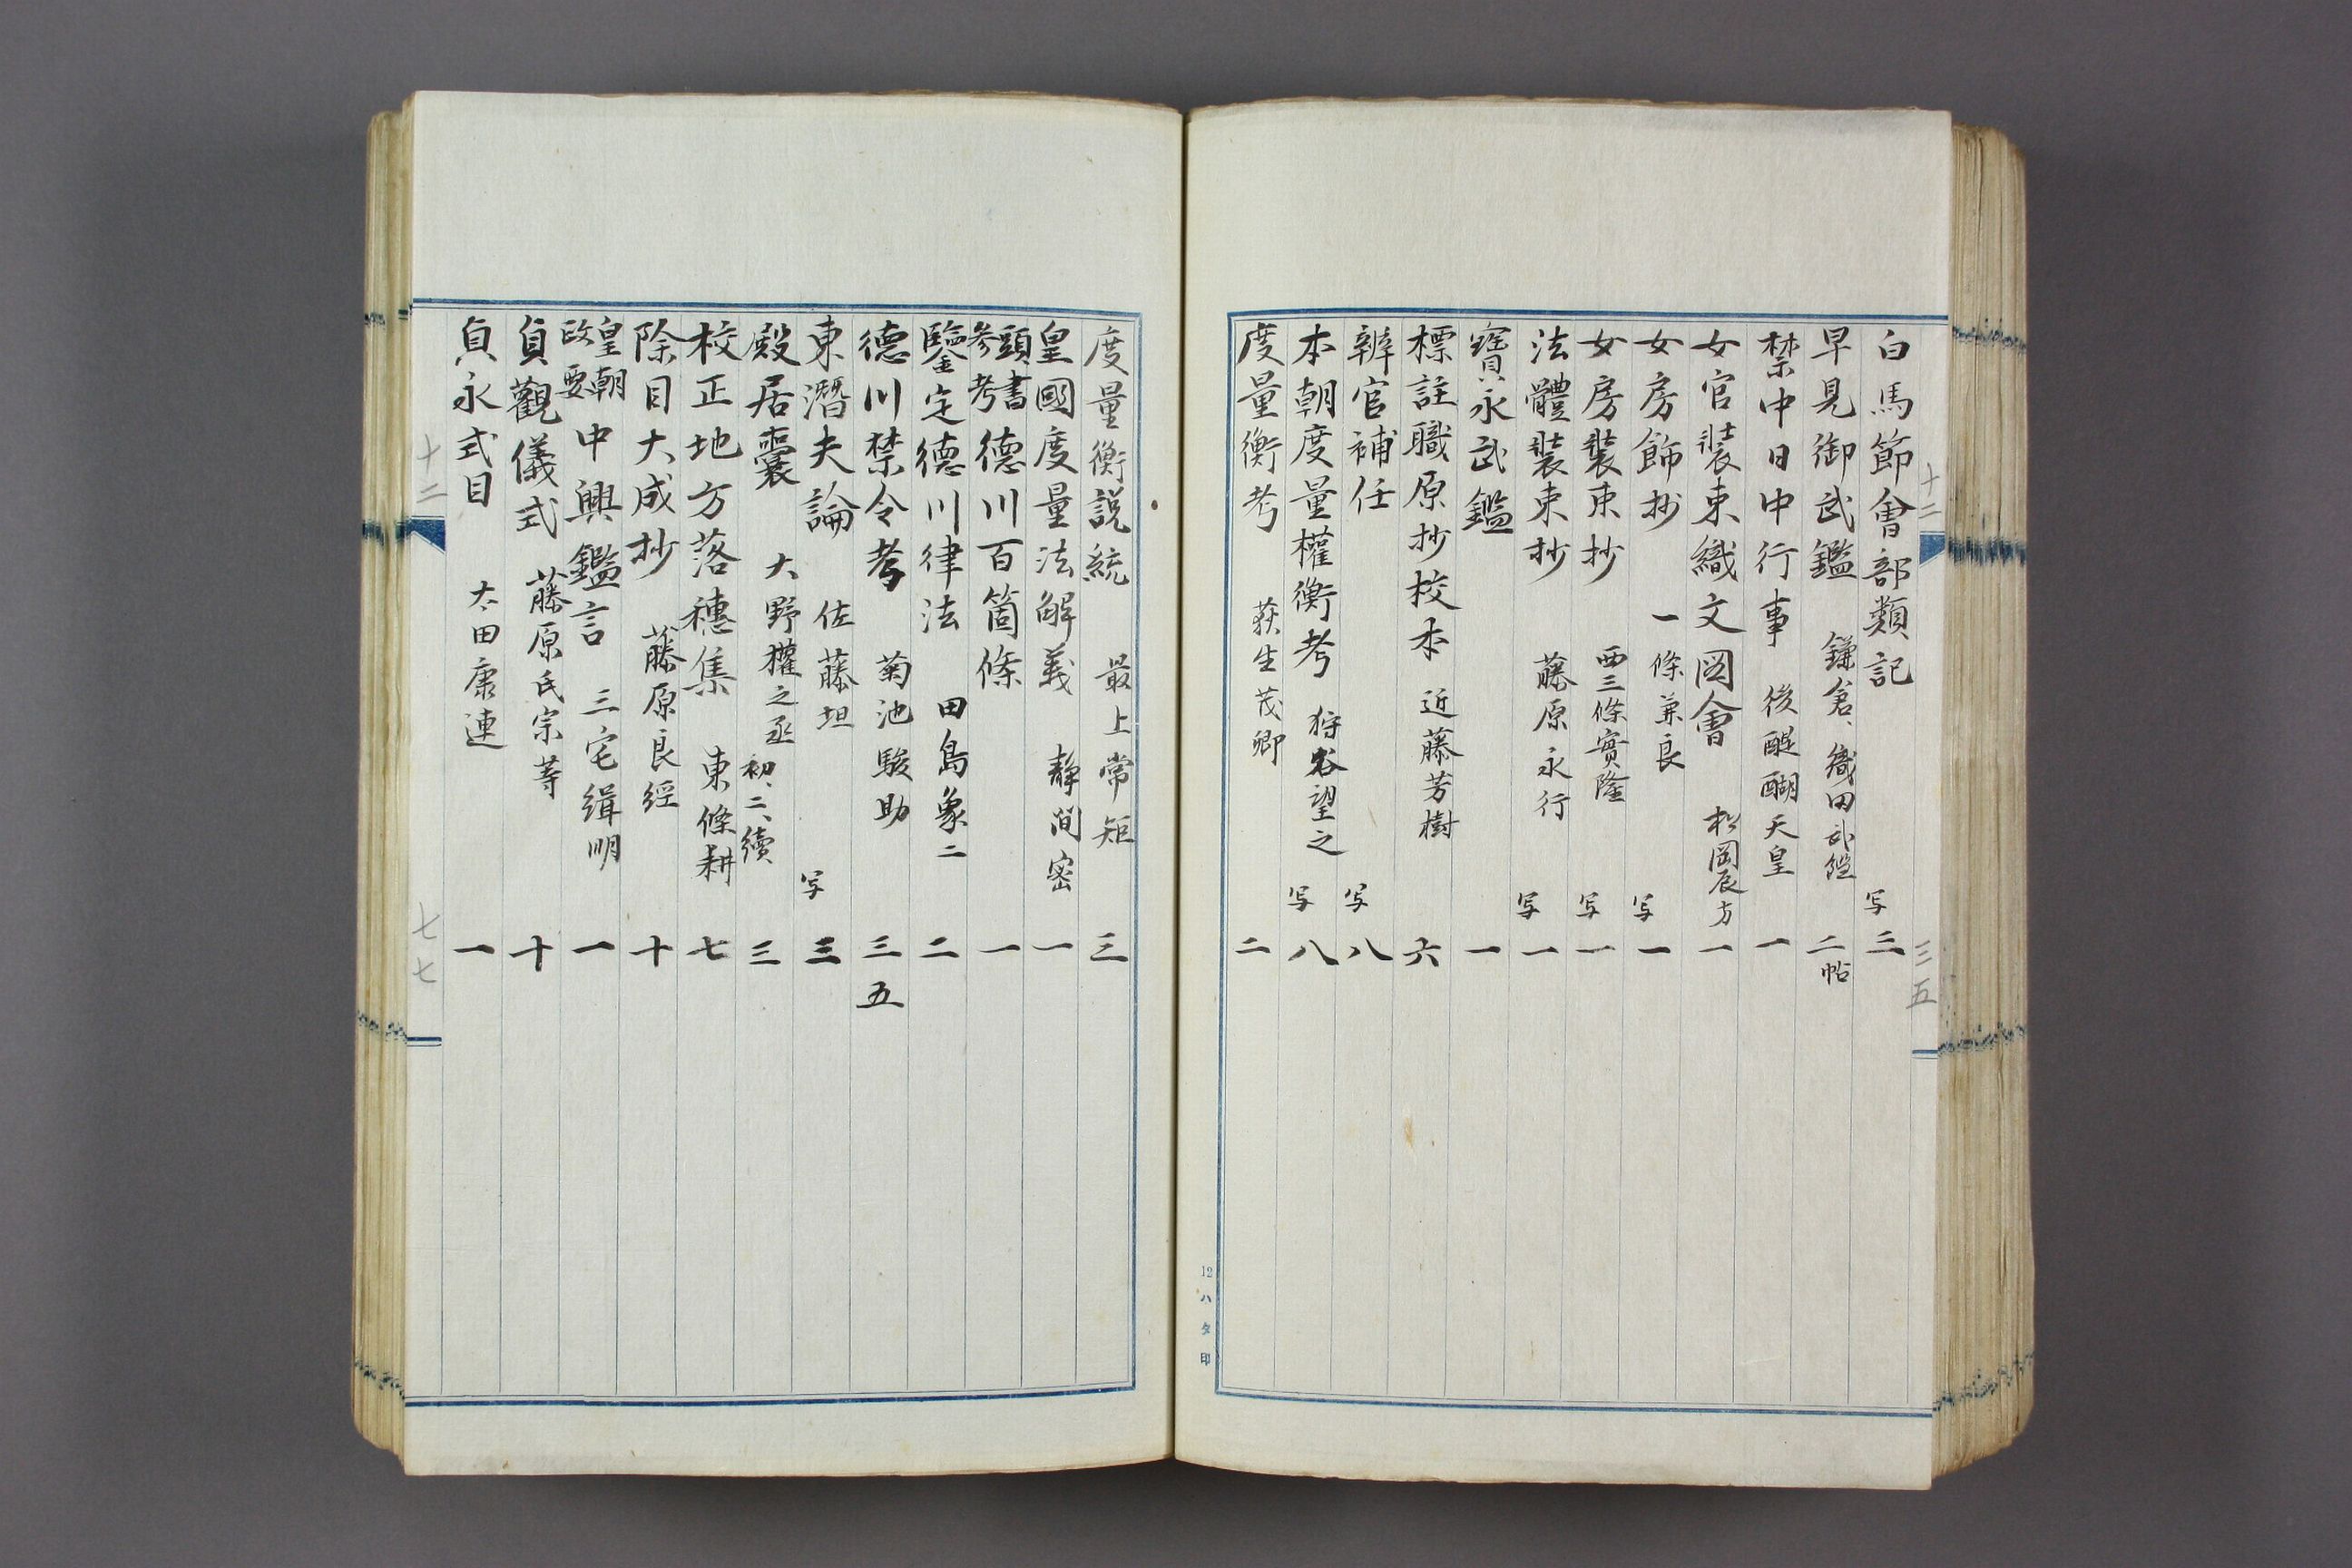 十二
三五
白馬節會部類記 写 三
早見御武鑑 鎌倉、織田武鑑 二帖
禁中日中行事 後醍醐天皇 一
女官裝束織文図會 松岡辰方 一
女房飾抄 一條兼良 写 一
女房裝束抄 西三條實隆 写 一
法體裝束抄 藤原永行 写 一
寶永武鑑 一
標註職原抄校本 近藤芳樹 六
辨官補任 写 八
本朝度量權衡考 狩谷望之 写 八
度量衡考 荻生茂卿 二
12ハタ印
度量衡説統 最上常矩 三
皇國度量法解義 静間密 一
頭書参考徳川百箇條 一
鑒定徳川律法 田島象二 二
徳川禁令考 菊池駿助 三五
東潛夫論 佐藤坦 写 三
殿居嚢 大野權之丞 初、二、續 三
校正地方落穗集 東條耕 七
除目大成抄 藤原良経 十
皇朝政要中興鑑言 三宅緝明 一
貞觀儀式 藤原氏宗等 十
貞永式目 太田康連 一
十二
七七